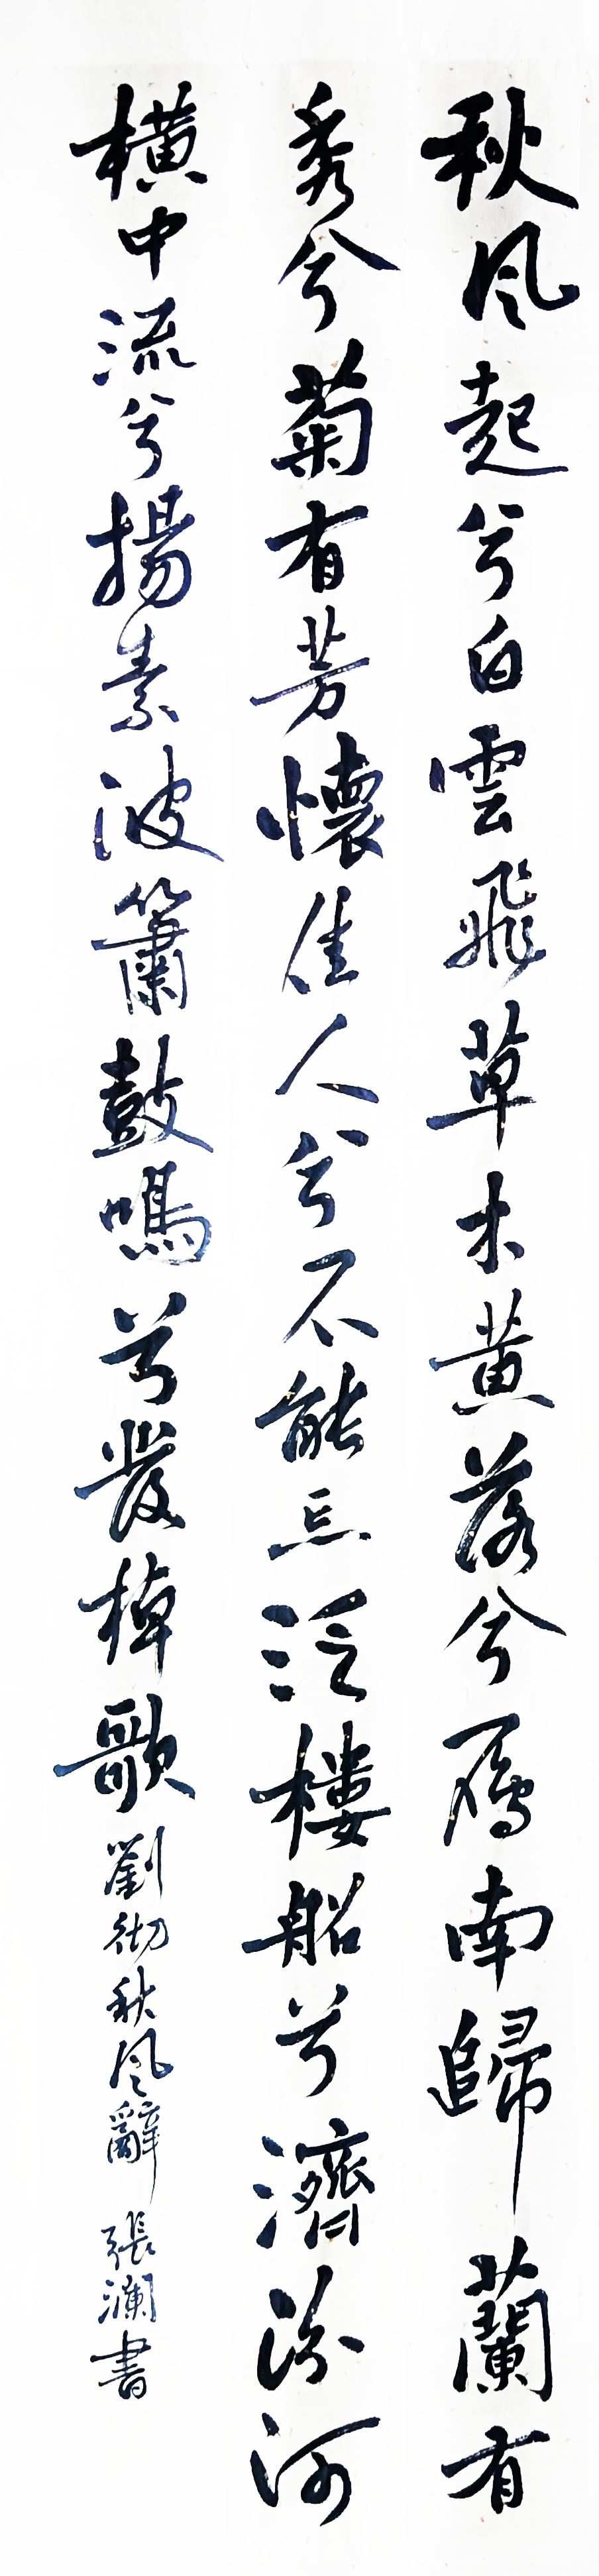 秋風起兮白雲飛草木黃落兮雁南歸蘭有
秀兮菊有芳懷佳人兮不能忘泛樓船兮濟汾河
橫中流兮揚素波簫鼓鳴兮發棹歌劉彻秋風辭 張瀾書